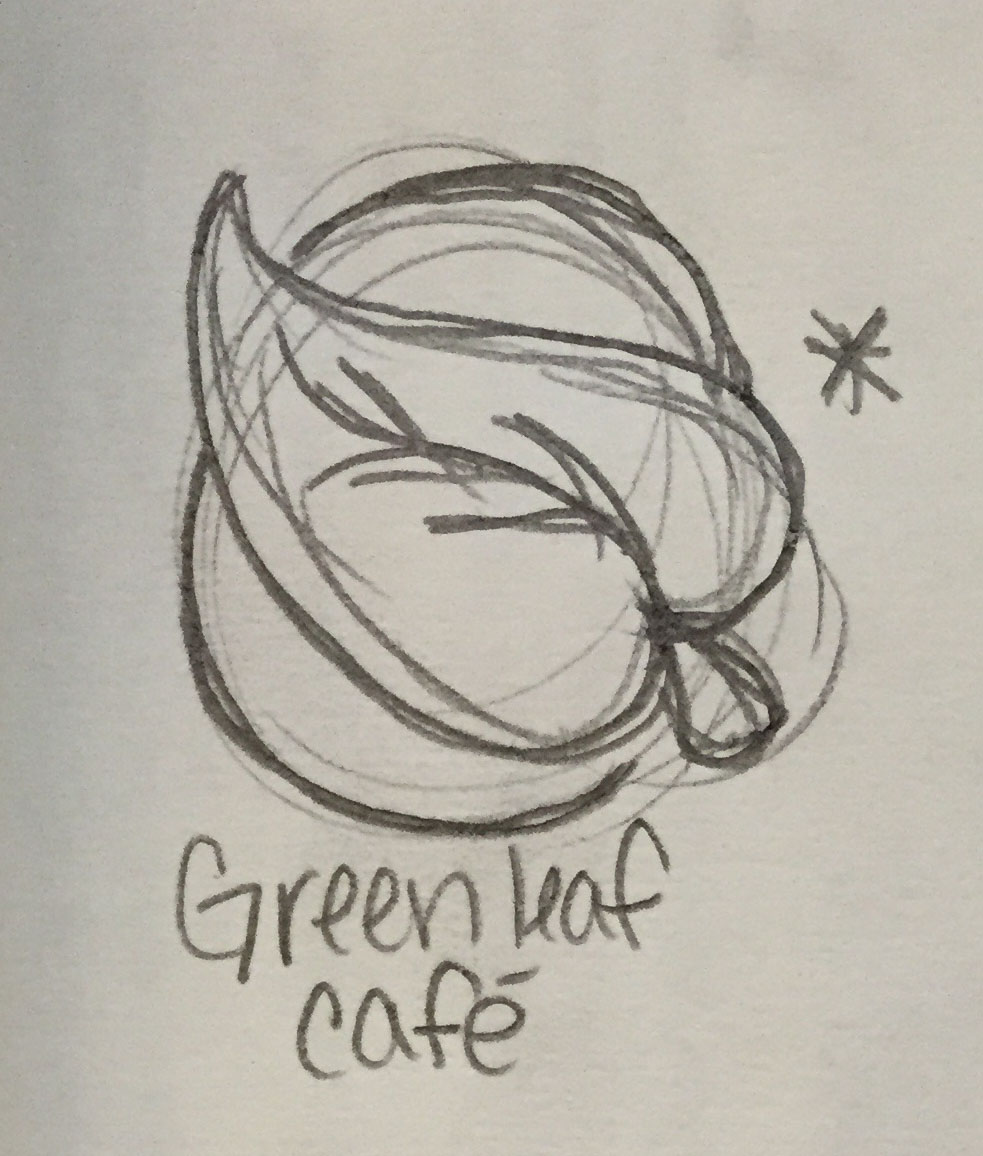 Green leaf
café